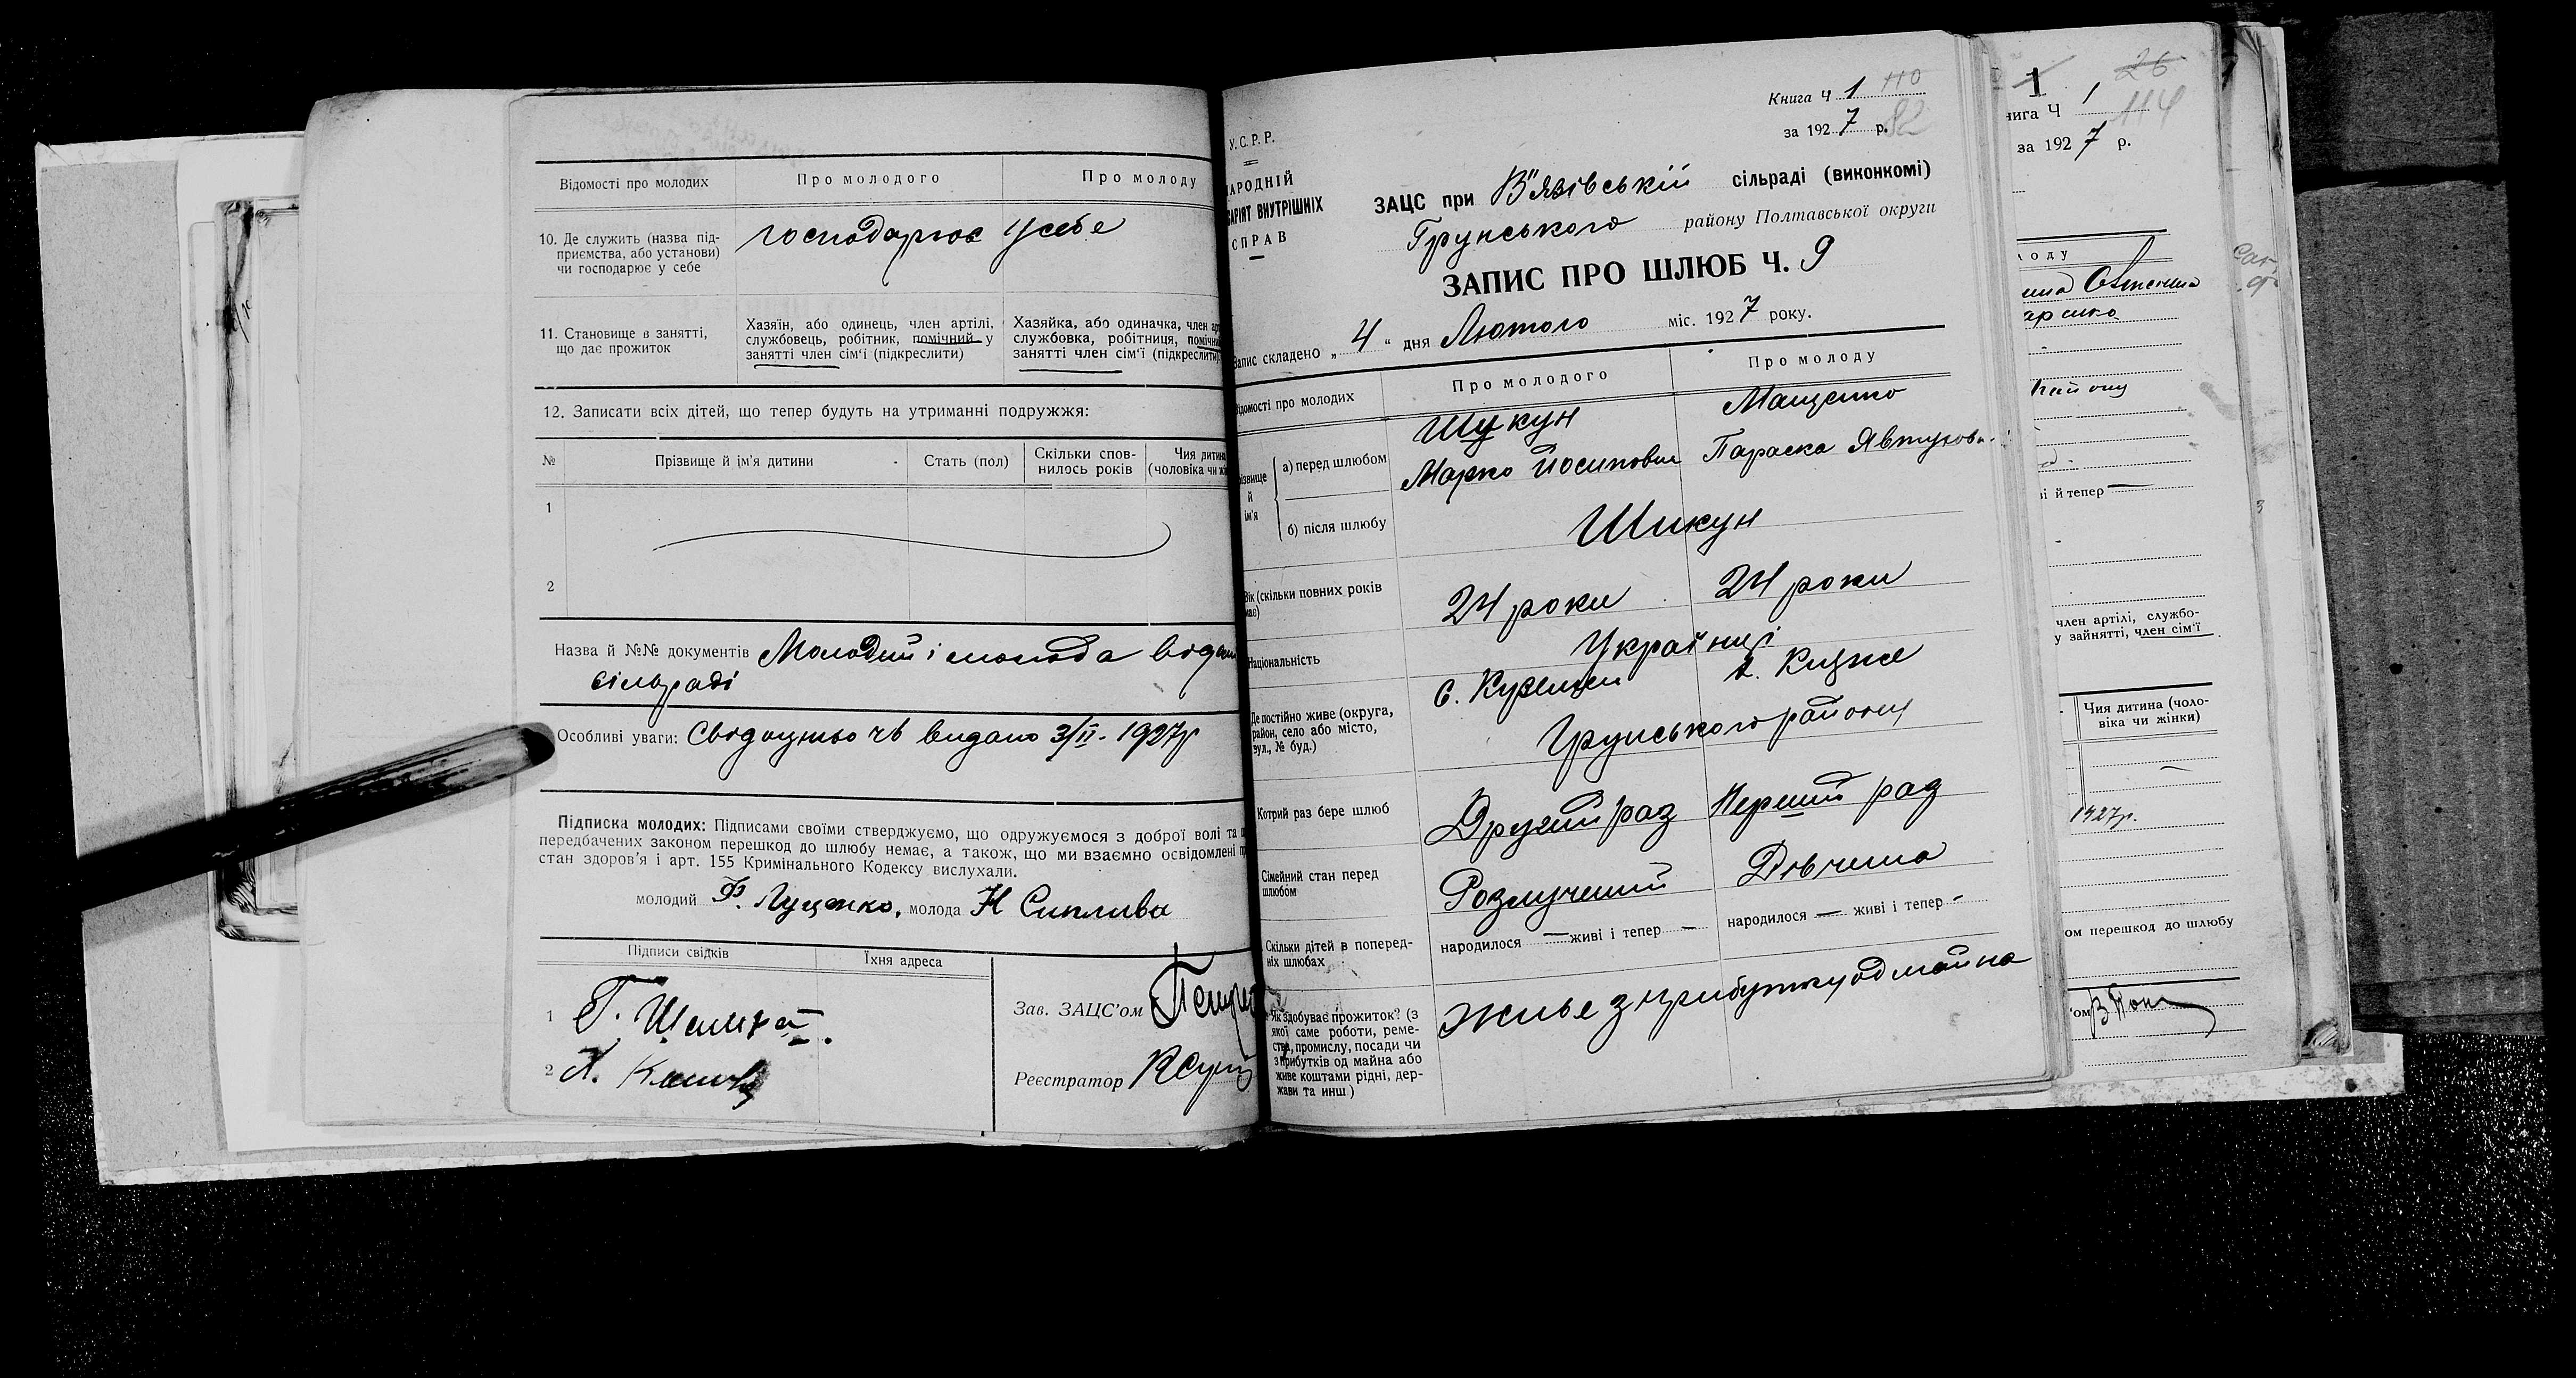 Відомості про молодих
Про молодого
Про молоду
10. Де служить (назва під-
приємства, або установи)
чи господарює у себе
господарює у себе
11. Становище в занятті,
що дає прожиток
Хазяїн, або одинець, член артілі,
службовець, робітник, помічний у
занятті член сім'ї (підкреслити)
Хазяйка, або одиначка, член
службовка, робітниця,
занятті член сім'ї (підкреслити)
12. Записати всіх дітей, що тепер будуть на утриманні подружжя:
№
Прізвище й ім'я дитини
Стать (пол)
Скільки спов-
нилось років
Чия дитина
(чоловіка чи
1
2
Назва й №№ документів Молодий і молода
сільраді
Особливі уваги: видано 3/II - 1927р
Підписка молодих: Підписами своїми стверджуємо, що одружуємося з доброї волі та
передбачених законом перешкод до шлюбу немає, а також, що ми взаємно освідомлені
стан здоров'я і арт. 155 Кримінального Кодексу вислухали.
молодий Ф. Луценко, молода Н Сиплива
Підписи свідків
Їхня адреса
1
2
Зав. ЗАЦС'ом
Реєстратор
Книга Ч 1 110
за 1927 р. 82
У.С.Р.Р.
НАРОДНІЙ
ВНУТРІШНІХ
СПРАВ
ЗАЦС при В"язівській сільраді (виконкомі)
Грунського району Полтавської округи
ЗАПИС ПРО ШЛЮБ Ч. 9
Запис складено „4“ дня Лютого міс. 1927 року.
Відомості про молодих
Про молодого
Про молоду
Прізвище
й
ім'я
а) перед шлюбом
Шукун
Марко Йосипович
Мащенко
Параска Явтухов
б) після шлюбу
Шикун
Вік (скільки повних років
має)
24 роки
24 роки
Національність
Українці
Де постійно живе (округа,
район, село або місто,
вул., № буд.)
Грунського району
Котрий раз бере шлюб
Другий раз
Перший раз
Сімейний стан перед
шлюбом
Розлучений
Дівчина
Скільки дітей в поперед-
ніх шлюбах
народилося — живі і тепер —
народилося — живі і тепер -
Як здобуває прожиток? (з
якої саме роботи, реме-
ства, промислу, посади чи
з прибутків од майна або
живе коштами рідні, дер-
жави та инш)
Живе з прибутку од майна
1
26
Ч 1 114
за 1927 р.
району
й тепер —
член артілі, службо-
у зайнятті, член сім'ї
Чия дитина (чоло-
віка чи жінки)
1927р.
перешкод до шлюбу